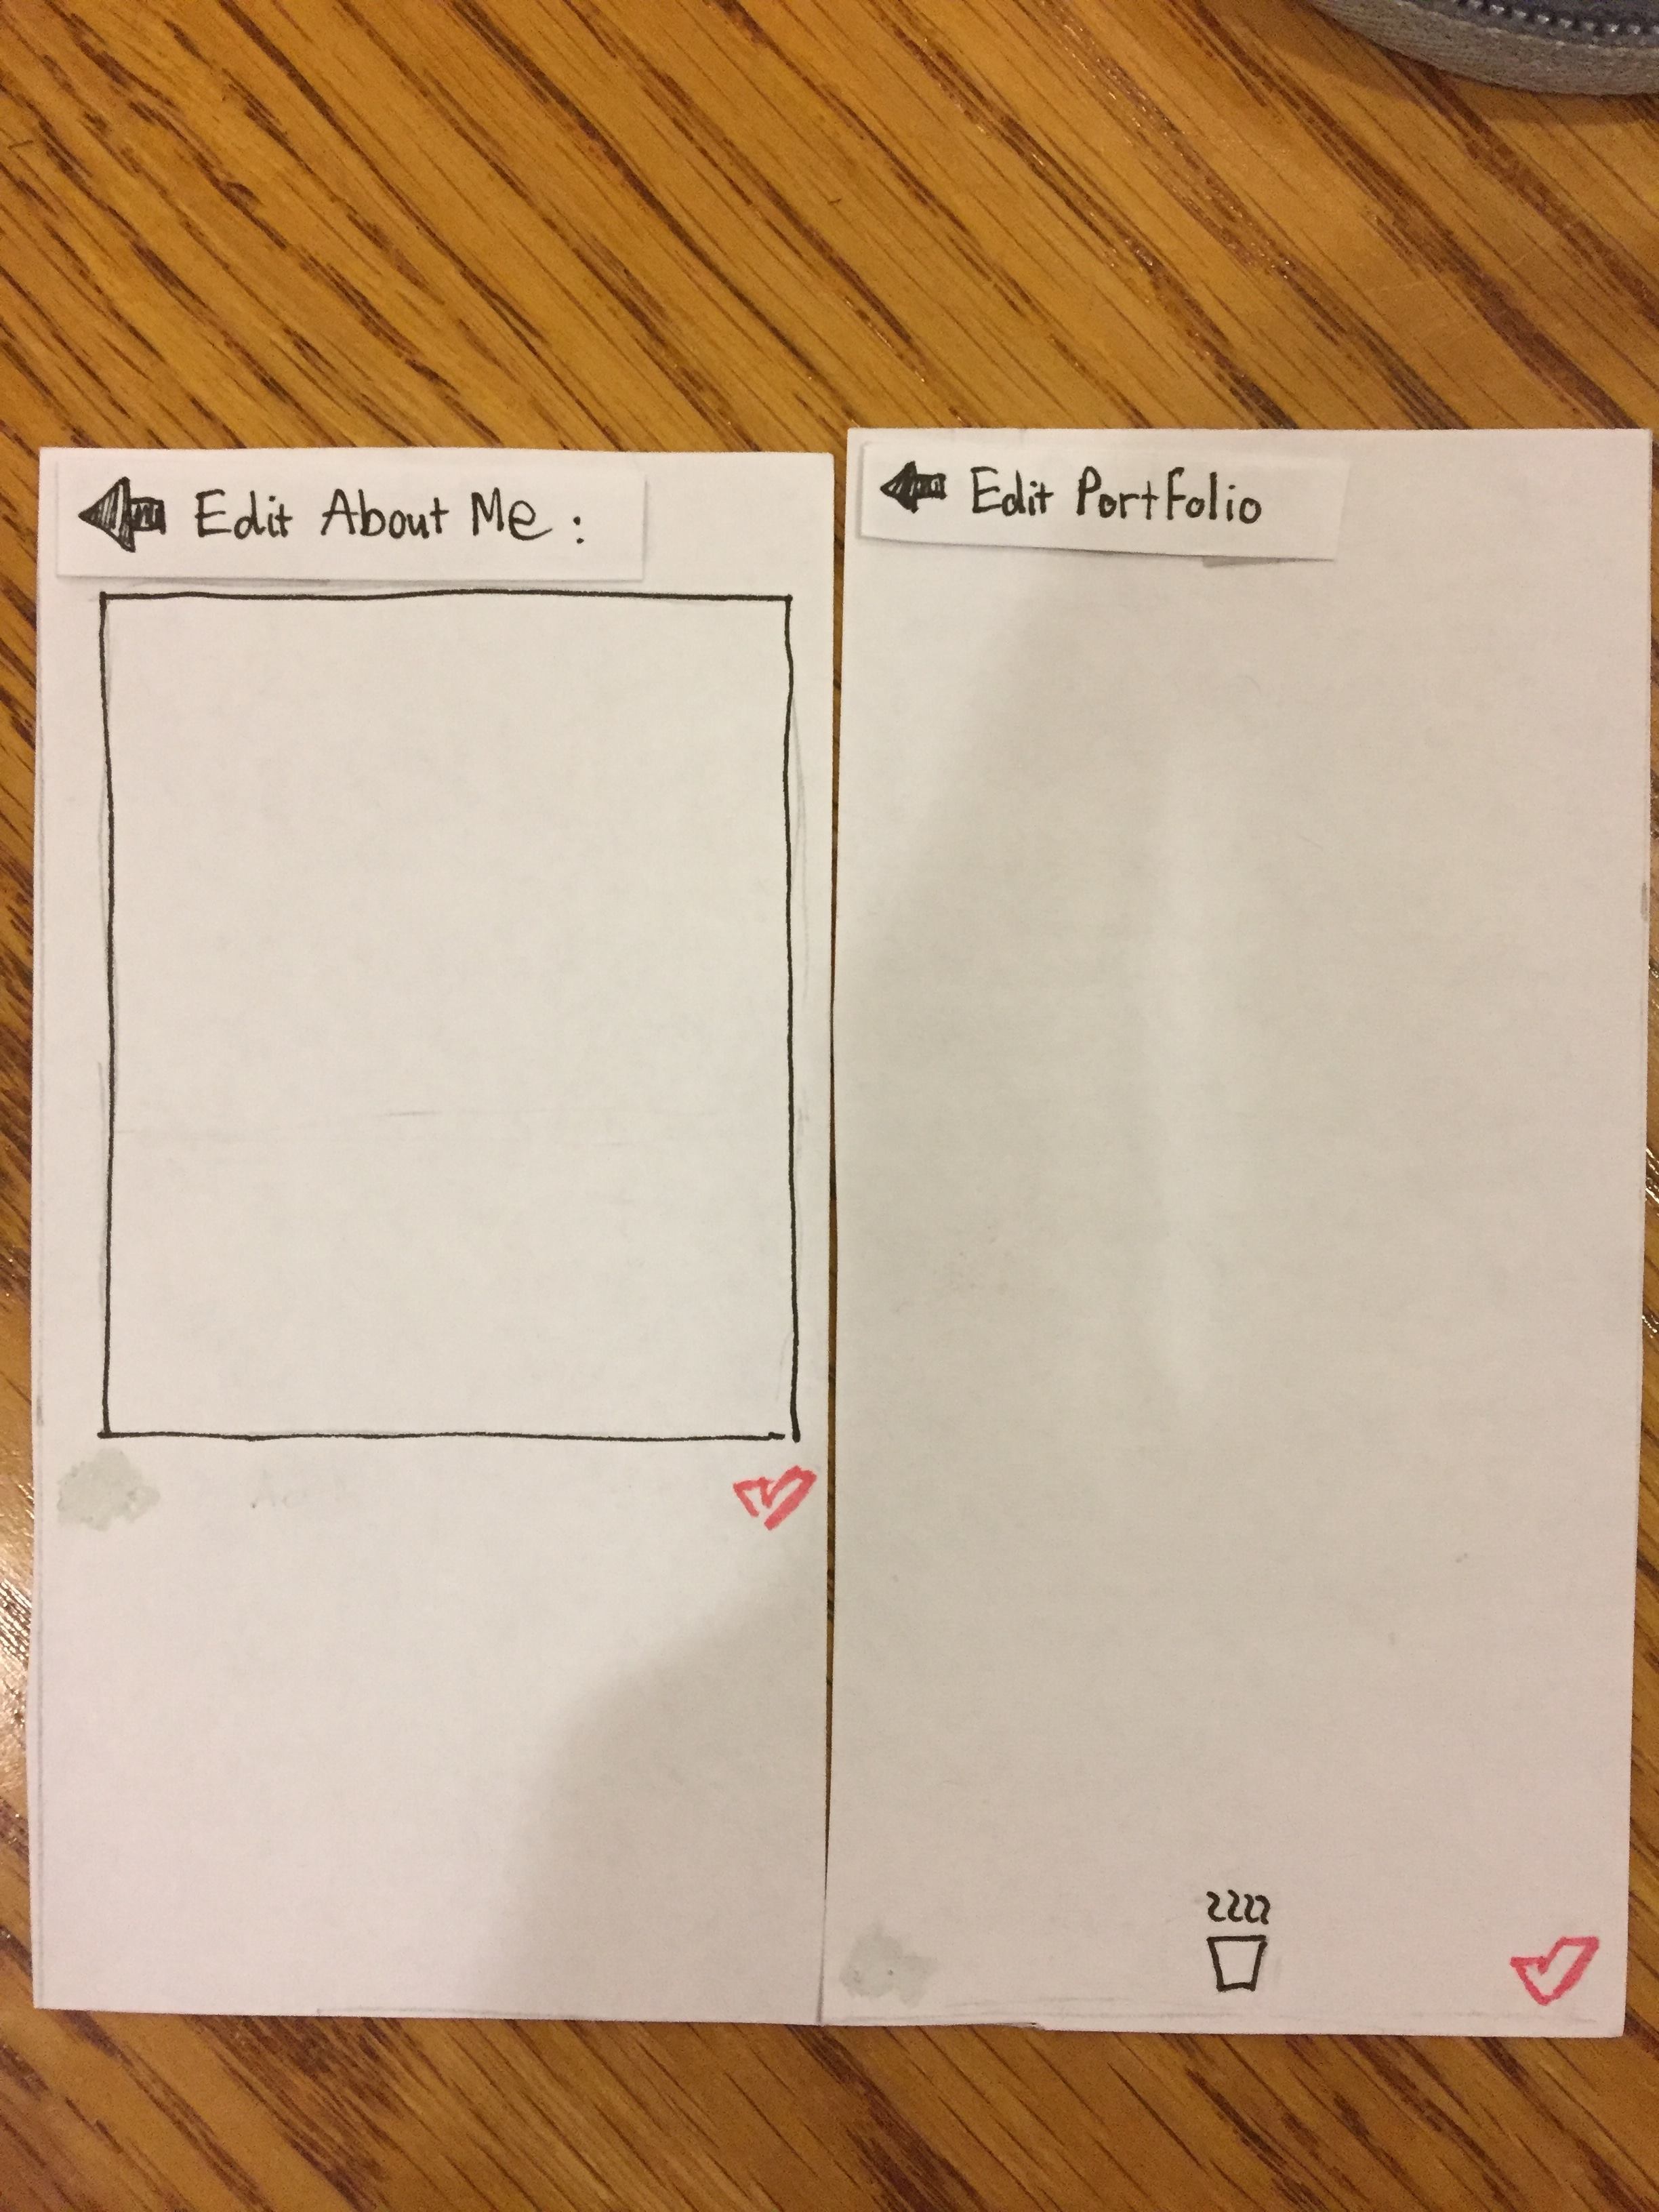 Edit About Me :
Edit Portfolio